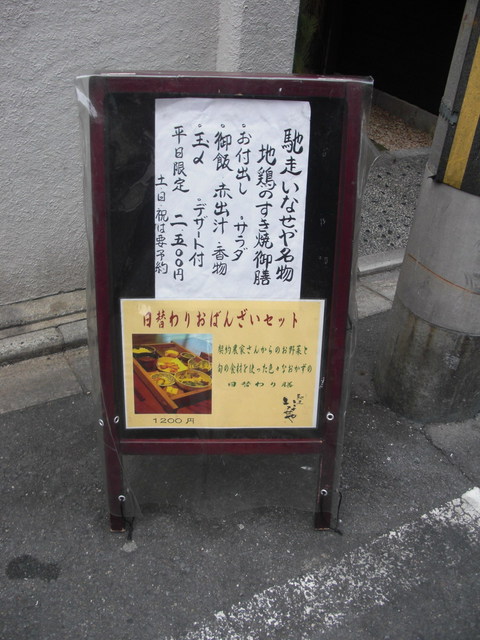 馳走いなせや名物
地鶏のすき焼御膳
・お付出し ・サラダ
・御飯 ・赤出汁 ・香物
・玉子 ・デザート付
平日限定 二五〇〇円
土日・祝は要予約
日替わりおばんざいセット
契約農家さんからのお野菜と
旬の食材を使った色々なおかずの
日替わり膳
1200円
馳走
いなせや